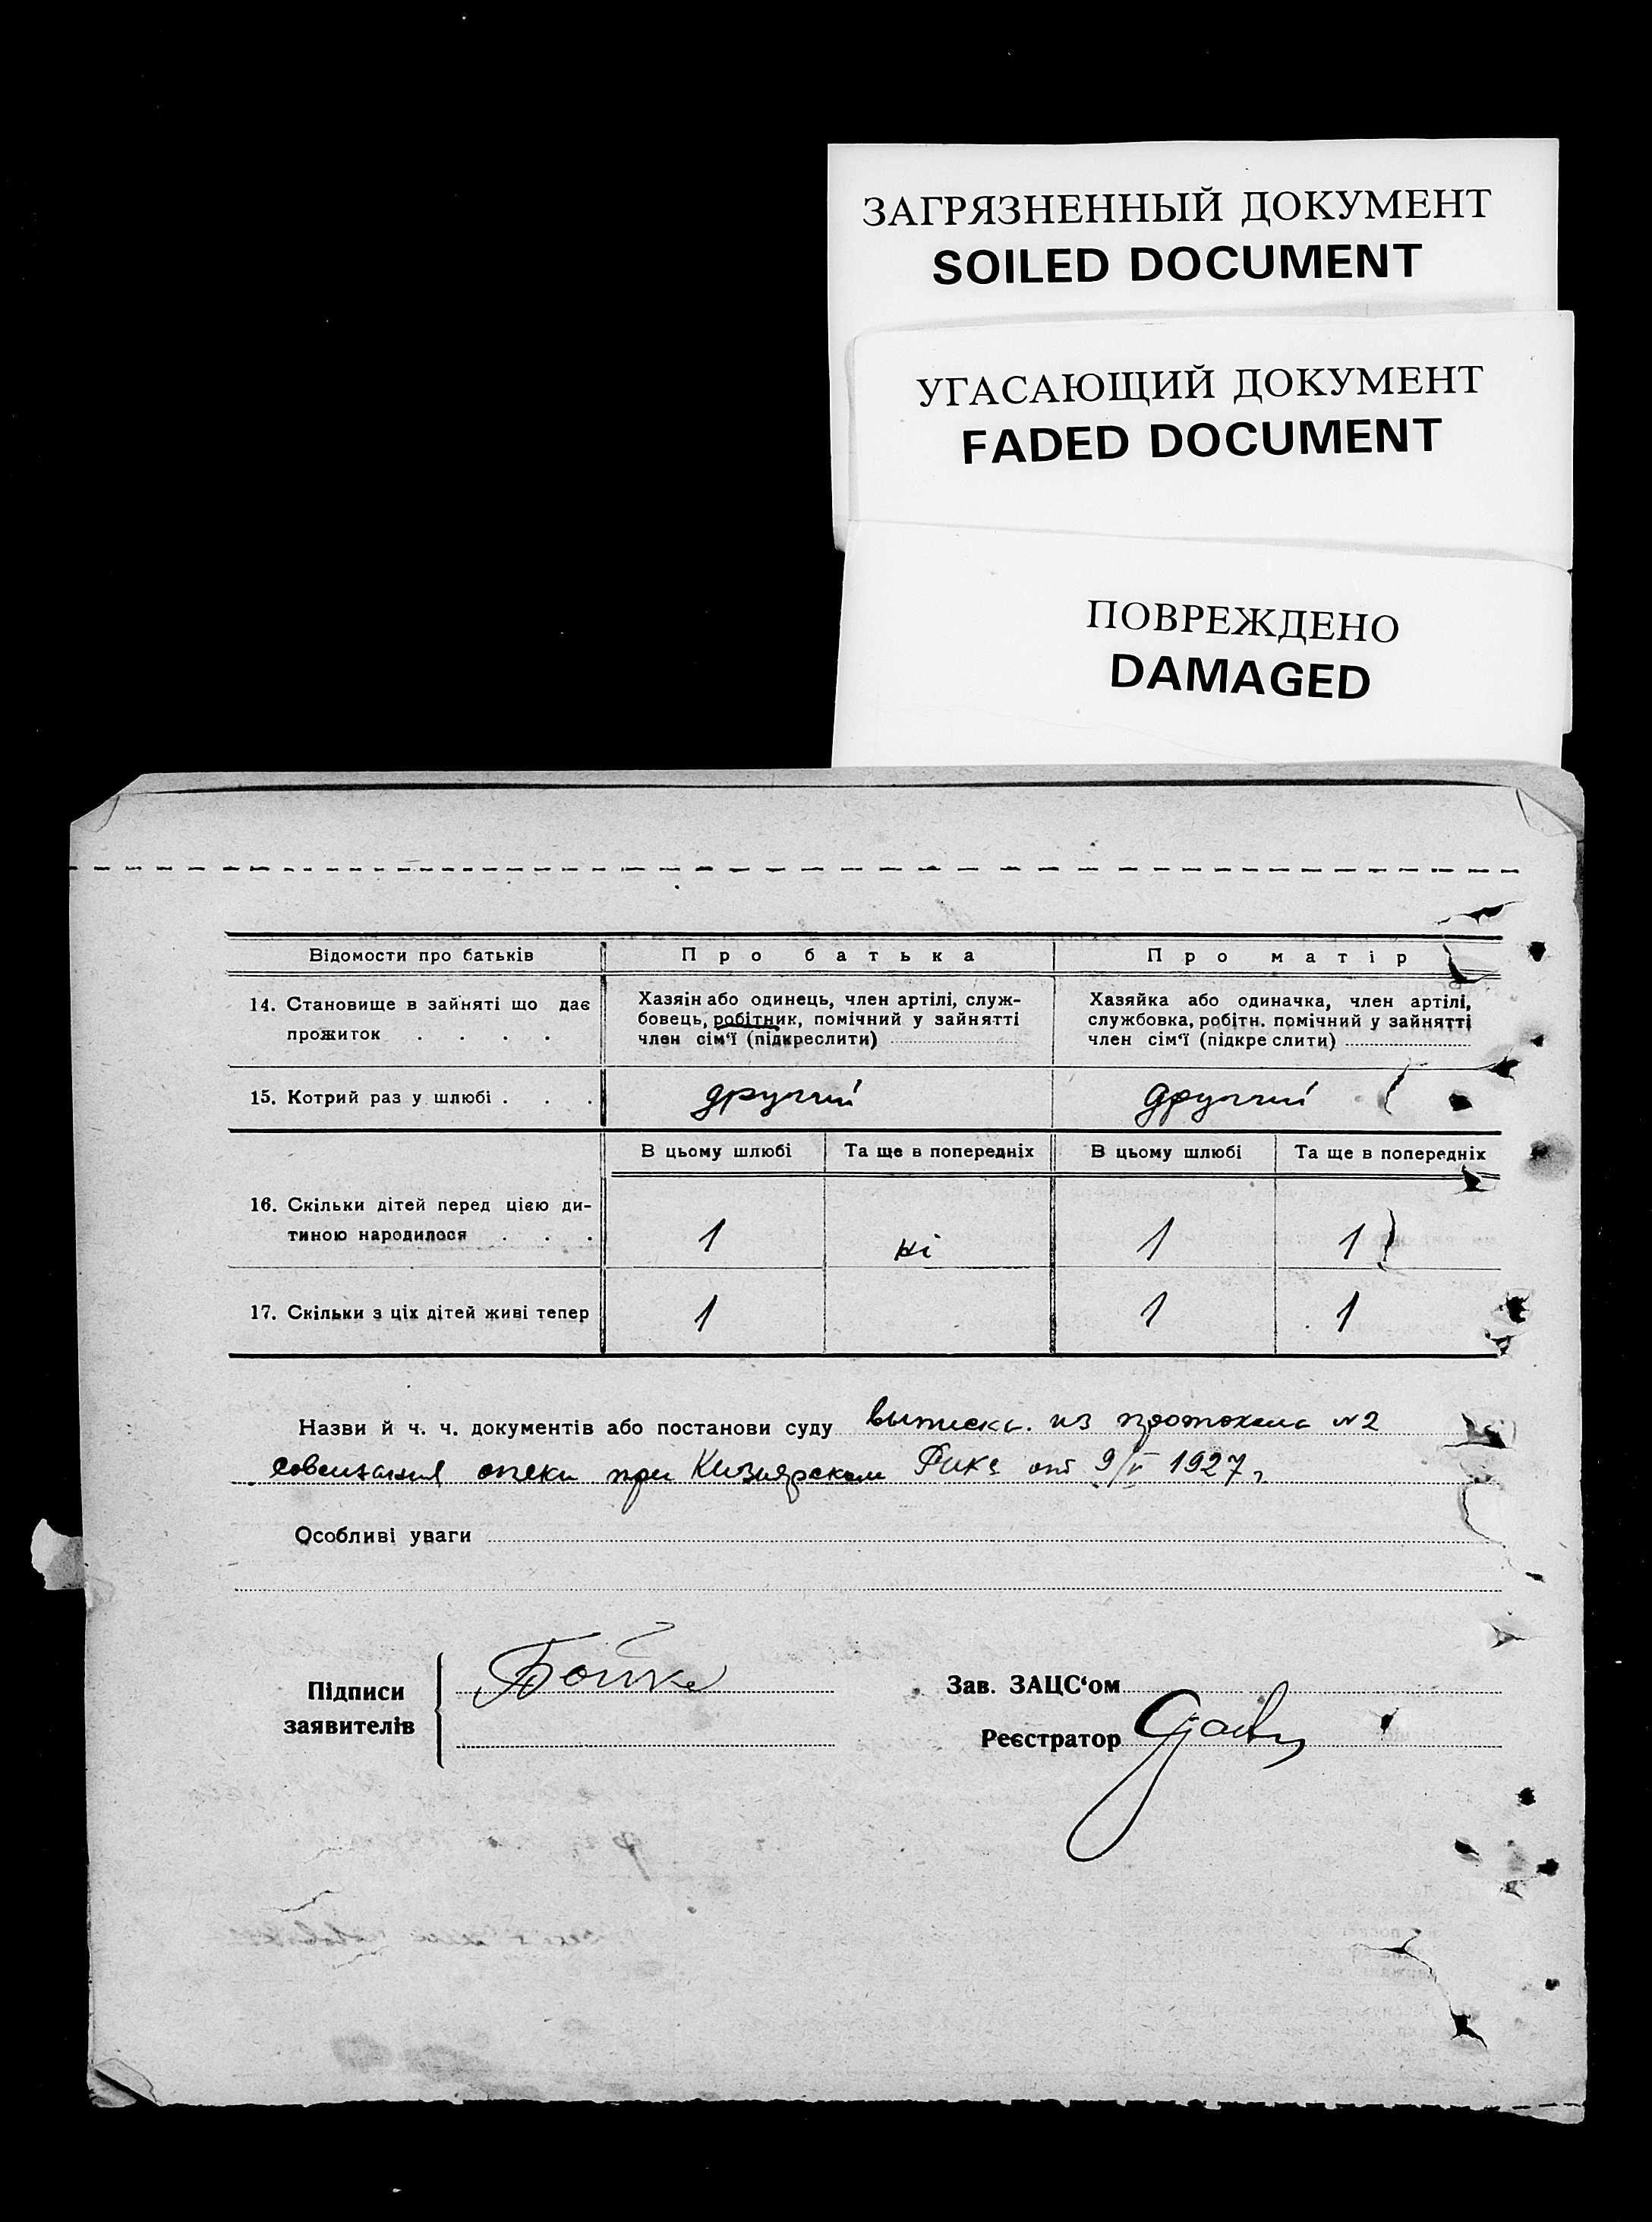 ЗАГРЯЗНЕННЫЙ ДОКУМЕНТ
SOILED DOCUMENT
УГАСАЮЩИЙ ДОКУМЕНТ
FADED DOCUMENT
ПОВРЕЖДЕНО
DAMAGED
Відомости про батьків Про батька Про матір
14. Становище в зайняті що дає
прожиток . . . .
Хазяін або одинець, член артілі, служ-
бовець, робітник, помічний у зайнятті
член сім‘ї (підкреслити)
Хазяйка або одиначка, член артілі,
службовка, робітн. помічний у зайнятті
член сім‘ї (підкреслити)
15. Котрий раз у шлюбі . . . другий другий
В цьому шлюбі Та ще в попередніх В цьому шлюбі Та ще в попередніх
16. Скільки дітей перед цією ди-
тиною народилося . . . 1 ні 1 1
17. Скільки з ціх дітей живі тепер 1 1 1
Назви й ч. ч. документів або постанови суду выписка. из протокола №2
совещания опеки при Кизиярском Рика от 9/II 1927 г
Особливі уваги
Підписи
заявителів
Бойко
Зав. ЗАЦС‘ом
Реєстратор